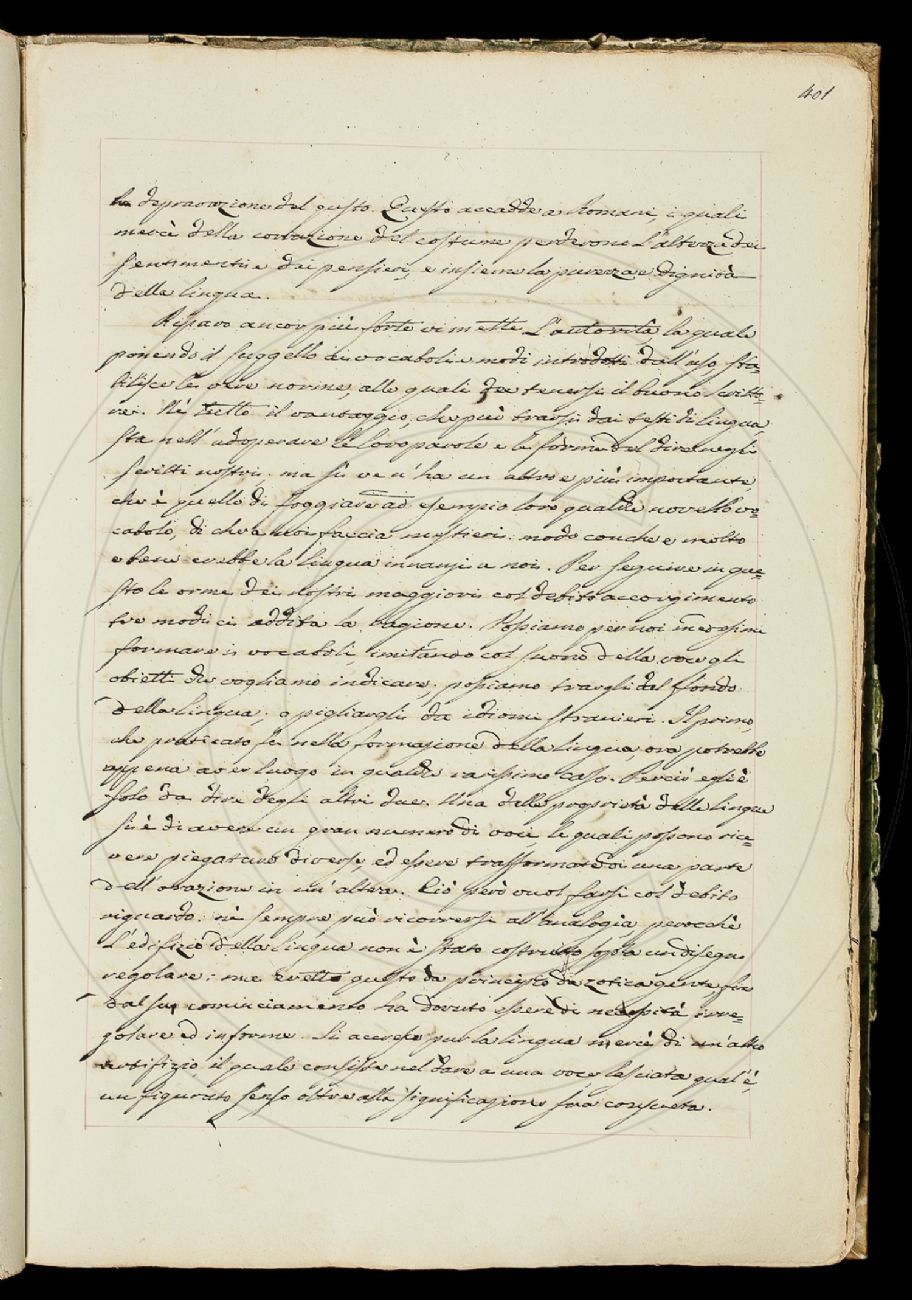 401
la depravazione del gusto. Questo accadde a Romani, i quali
mercè della corruzione del costume perderono l'altezza dei
sentimenti e dei pensieri, e insieme la purezza e dignità
della lingua.
Riparo ancor più forte vi mette l'autorità, la quale
ponendo il suggello ai vocaboli e modi introdotti dall'uso, sta=
bilisce le vere norme, alle quali dee tenersi il buono scritto=
re. Nè tutto il vantaggio, che può trarsi dai testi di lingua,
sta nell'adoperare le loro parole e le forme del dire negli
scritti nostri; ma si ve n'ha un altro e più importante,
che è quello di foggiare ad esempio loro qualche novello vo=
cabolo, di che a noi faccia mestieri: modo con che e molto
e bene crebbe la lingua innanzi a noi. Per seguire in que=
sto le orme dei nostri maggiori col debito accorgimento
tre modi ci addita la ragione. Possiamo per noi medesimi
formare i vocaboli, imitando col suono della voce gli
obietti che vogliamo indicare; possiamo trargli dal fondo
della lingua; o pigliargli da idiomi stranieri. Il primo,
che praticato fu nella formazione della lingua, ora potrebbe
appena aver luogo in qualche rarissimo caso. Perciò egli è
solo da dire degli altri due. Una delle proprietà delle lingue
si è di avere un gran numero di voci le quali possono rice=
vere piegature diverse, ed essere trasformate di una parte
dell'orazione in un'altra. Ciò però vuol farsi col debito
riguardo: nè sempre può ricorrersi all'analogia, perocchè
l'edifizio della lingua non è stato costrutto sopra un disegno
regolare: ma eretto questo da principio da zotica gente fin
dal suo cominciamento ha dovuto essere di necessità irre=
golare ed informe. Si accresce pur la lingua mercè di un'altro
artifizio il quale consiste nel dare a una voce lasciata qual'è,
un figurato senso oltre alla significazione sua consueta.